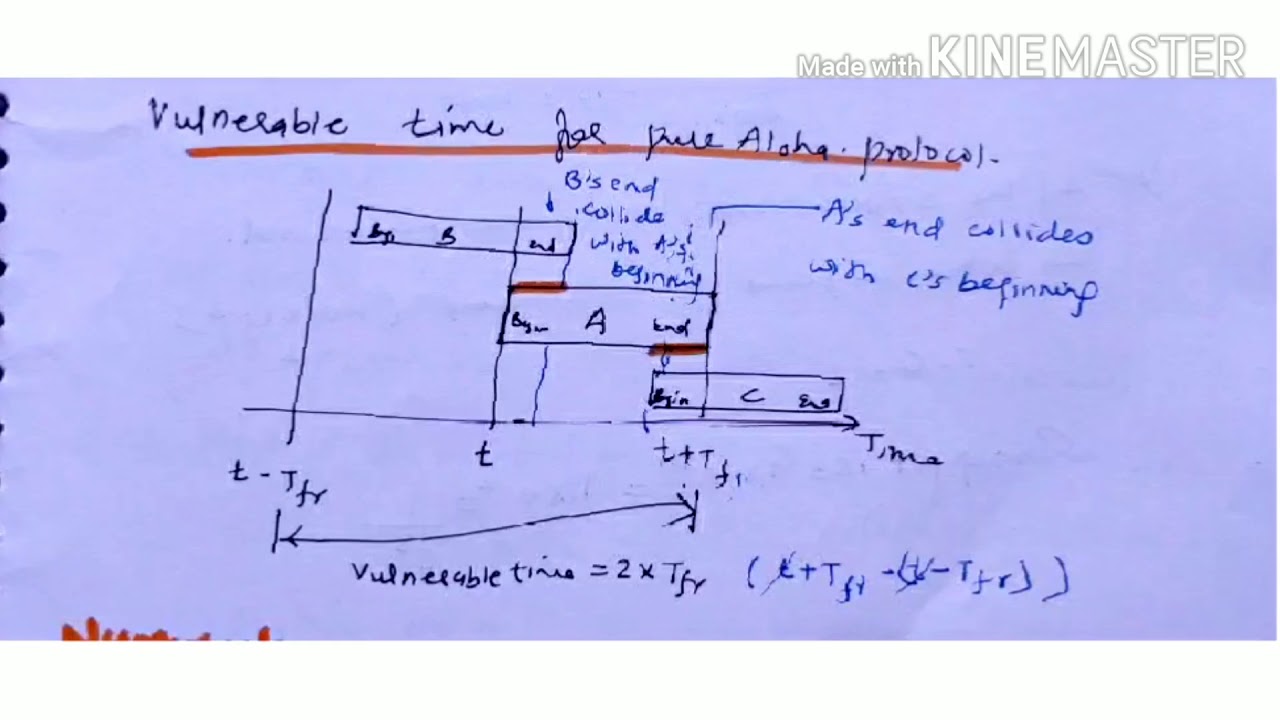 Made with KINEMASTER
Vulnerable time for pure Aloha protocol.
B's end
collide
with A's
beginning
A's end collides
with C's beginning
Begin B end
Begin A End
Begin C End
Time
t - Tfr
t
t + Tfr
Vulnerable time = 2 x Tfr (t + Tfr - (t - Tfr))